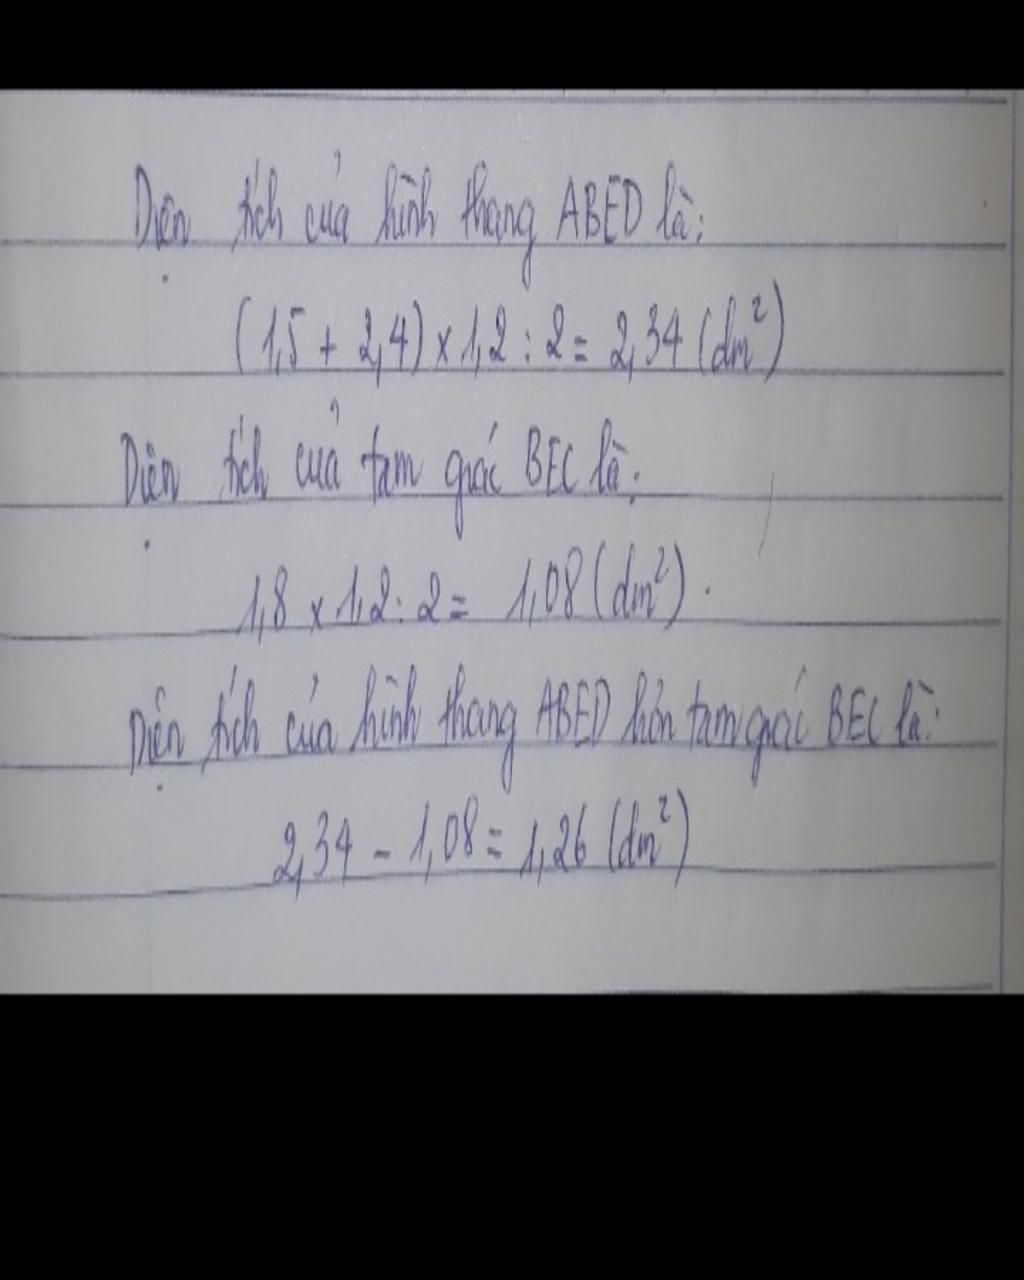 Diện tích của hình thang ABED là:
(1,5 + 2,4) x 1,2 : 2 = 2,34 (dm²)
Diện tích của tam giác BEC là:
1,8 x 1,2 : 2 = 1,08 (dm²).
Diện tích của hình thang ABED hơn tam giác BEC là:
2,34 - 1,08 = 1,26 (dm²)